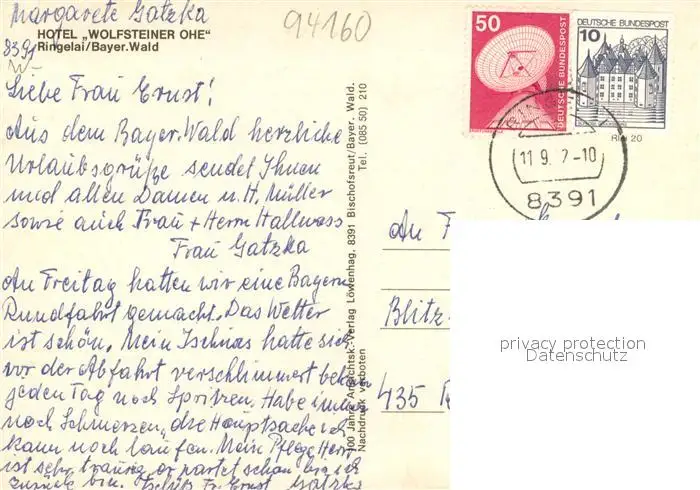 Margarete Gatzka
94160
8391
HOTEL „WOLFSTEINER OHE"
Ringelai/Bayer.Wald
Liebe Frau Ernst!
Aus dem Bayer. Wald herzliche
Urlaubsgrüße sendet Ihnen
und allen Damen u. H. Müller
sowie auch Frau + Herrn Hallwass
Frau Gatzka
Am Freitag hatten wir eine Bayern
Rundfahrt gemacht. Das Wetter
ist schön. Mein Ischias hatte sich
vor der Abfahrt verschlimmert
jeden Tag noch Spritzen. Habe immer
noch Schmerzen, die Hauptsache ich
kann noch laufen. Mein Pflege
ist sehr traurig er wartet schon bis ich
zurück bin. Tschüß Fr. Ernst Gatzka
100 Jahre Ansichtsk.-Verlag Löwenhag, 8391 Bischofsreut/Bayer. Wald.
Nachdruck verboten
Tel. (085 50) 210
50
DEUTSCHE BUNDESPOST
DEUTSCHE BUNDESPOST
10
20
11 9. 7-10
8391
An F
Blitz-
435
privacy protection
Datenschutz